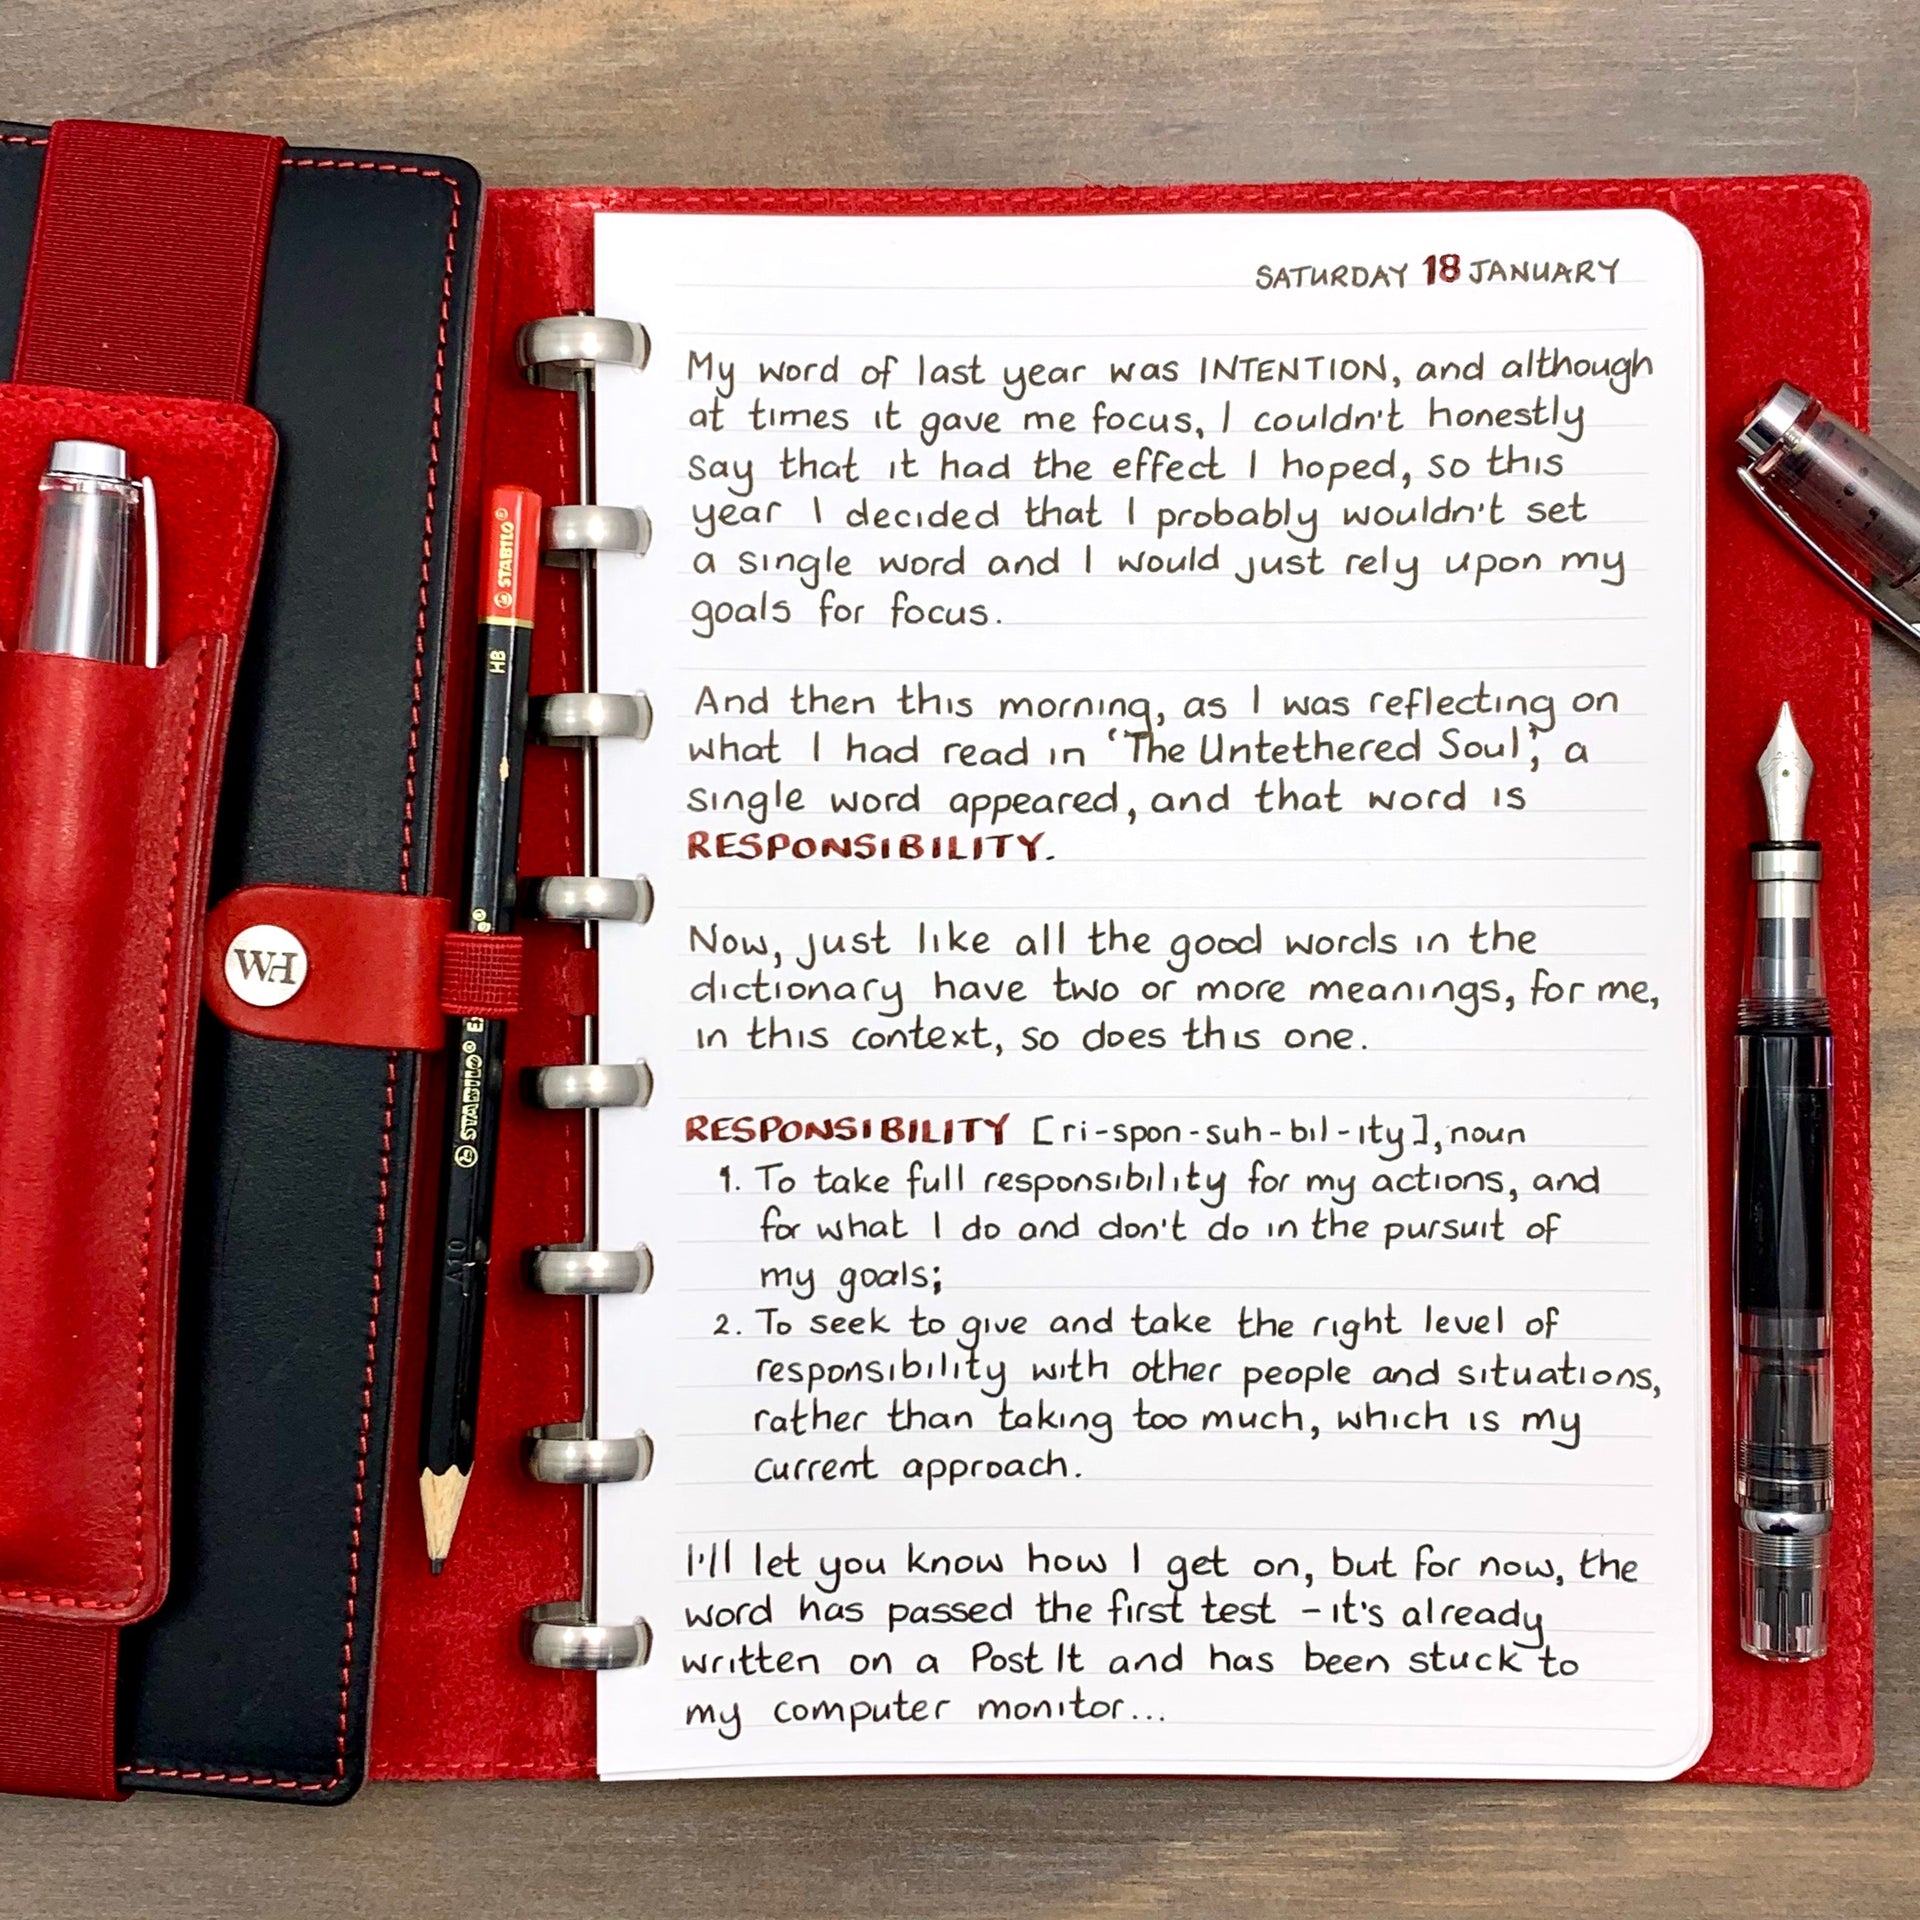 SATURDAY 18 JANUARY
My word of last year was INTENTION, and although
at times it gave me focus, I couldn't honestly
say that it had the effect I hoped, so this
year I decided that I probably wouldn't set
a single word and I would just rely upon my
goals for focus.
And then this morning, as I was reflecting on
what I had read in 'The Untethered Soul', a
single word appeared, and that word is
RESPONSIBILITY.
Now, just like all the good words in the
dictionary have two or more meanings, for me,
in this context, so does this one.
RESPONSIBILITY [ri-spon-suh-bil-ity], noun
1. To take full responsibility for my actions, and
for what I do and don't do in the pursuit of
my goals;
2. To seek to give and take the right level of
responsibility with other people and situations,
rather than taking too much, which is my
current approach.
I'll let you know how I get on, but for now, the
word has passed the first test - it's already
written on a Post It and has been stuck to
my computer monitor...
STABILO®
HB
STABILO®
WH